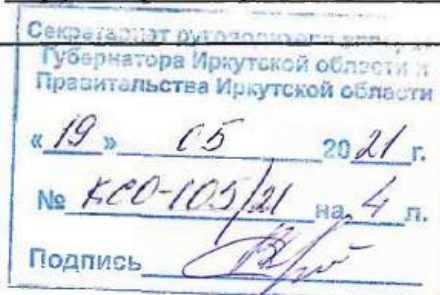 Секретариат руководителя аппарата
Губернатора Иркутской области и
Правительства Иркутской области
«19» 05 2021 г.
№ КСО-105/21 на 4 л.
Подпись